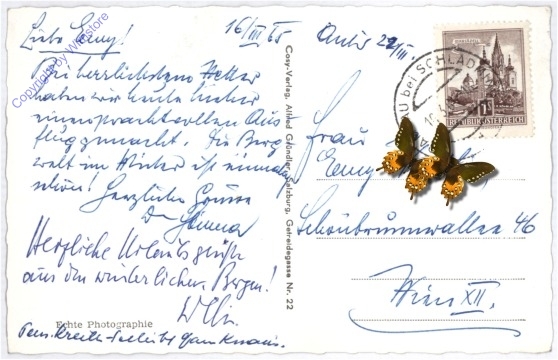 16/III 65
Liebe Emmy!
Bei herrlichstem Wetter
haben wir heute hierher
einen prachtvollen Aus-
flug gemacht. Die Berg-
welt im Winter ist einmalig
schön! Herzliche Grüsse
Herzliche Urlaubsgrüße
aus den winterlichen Bergen!
Willi
Echte Photographie
Cosy-Verlag, Alfred Gründler, Salzburg, Getreidegasse Nr. 22
22/III.
U bei SCHLADM
REPUBLIK ÖSTERREICH
Frau
Emmy
Schönbrunnerallee 46
Wien XII.
Copyright by Wienstore